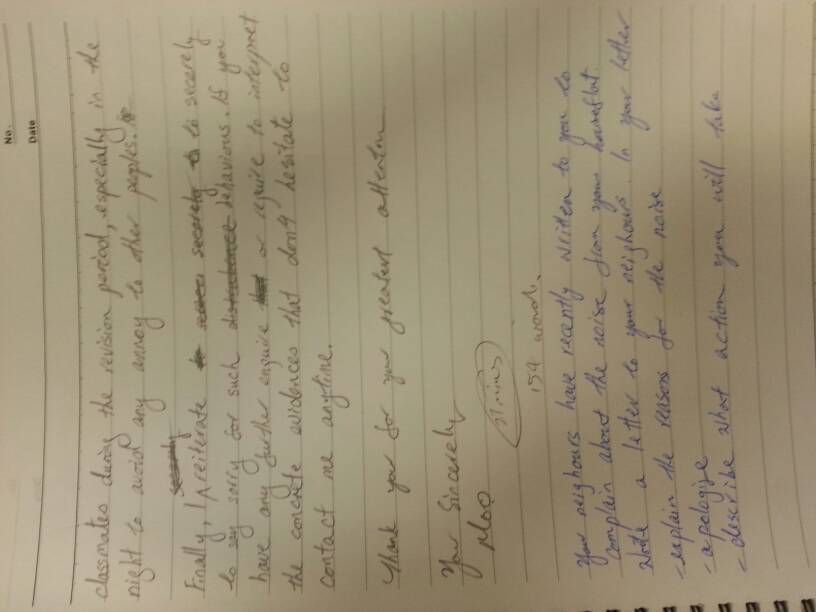 No.
Date
classmates during the revision period, especially in the
night to avoid any annoy to other peoples.
Finally, I reiterate to secerely
to say sorry for such disturbance behavious. If you
have any further enquire or require to interpret
the concrete evidences that don't hesitate to
contact me anytime.
Thank your for your greatest attention
Your Sincerely
Mao
31 mins
154 words.
Your neighours have recently written to you to
complain about the noise from your house/flat.
Write a letter to your neighours. In your letter
- explain the reasons for the noise
- apologise
- describe what action you will take